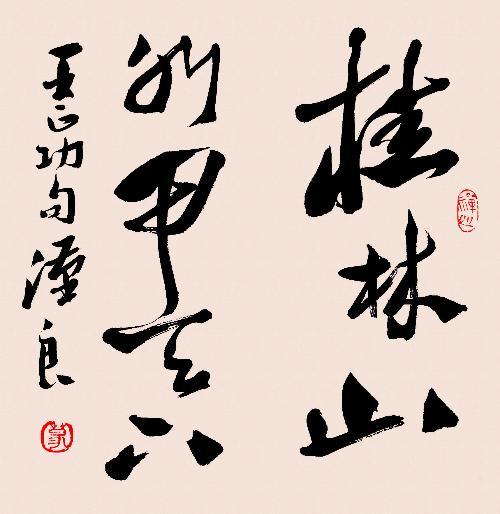 桂林山
水甲天下
王正功句 良